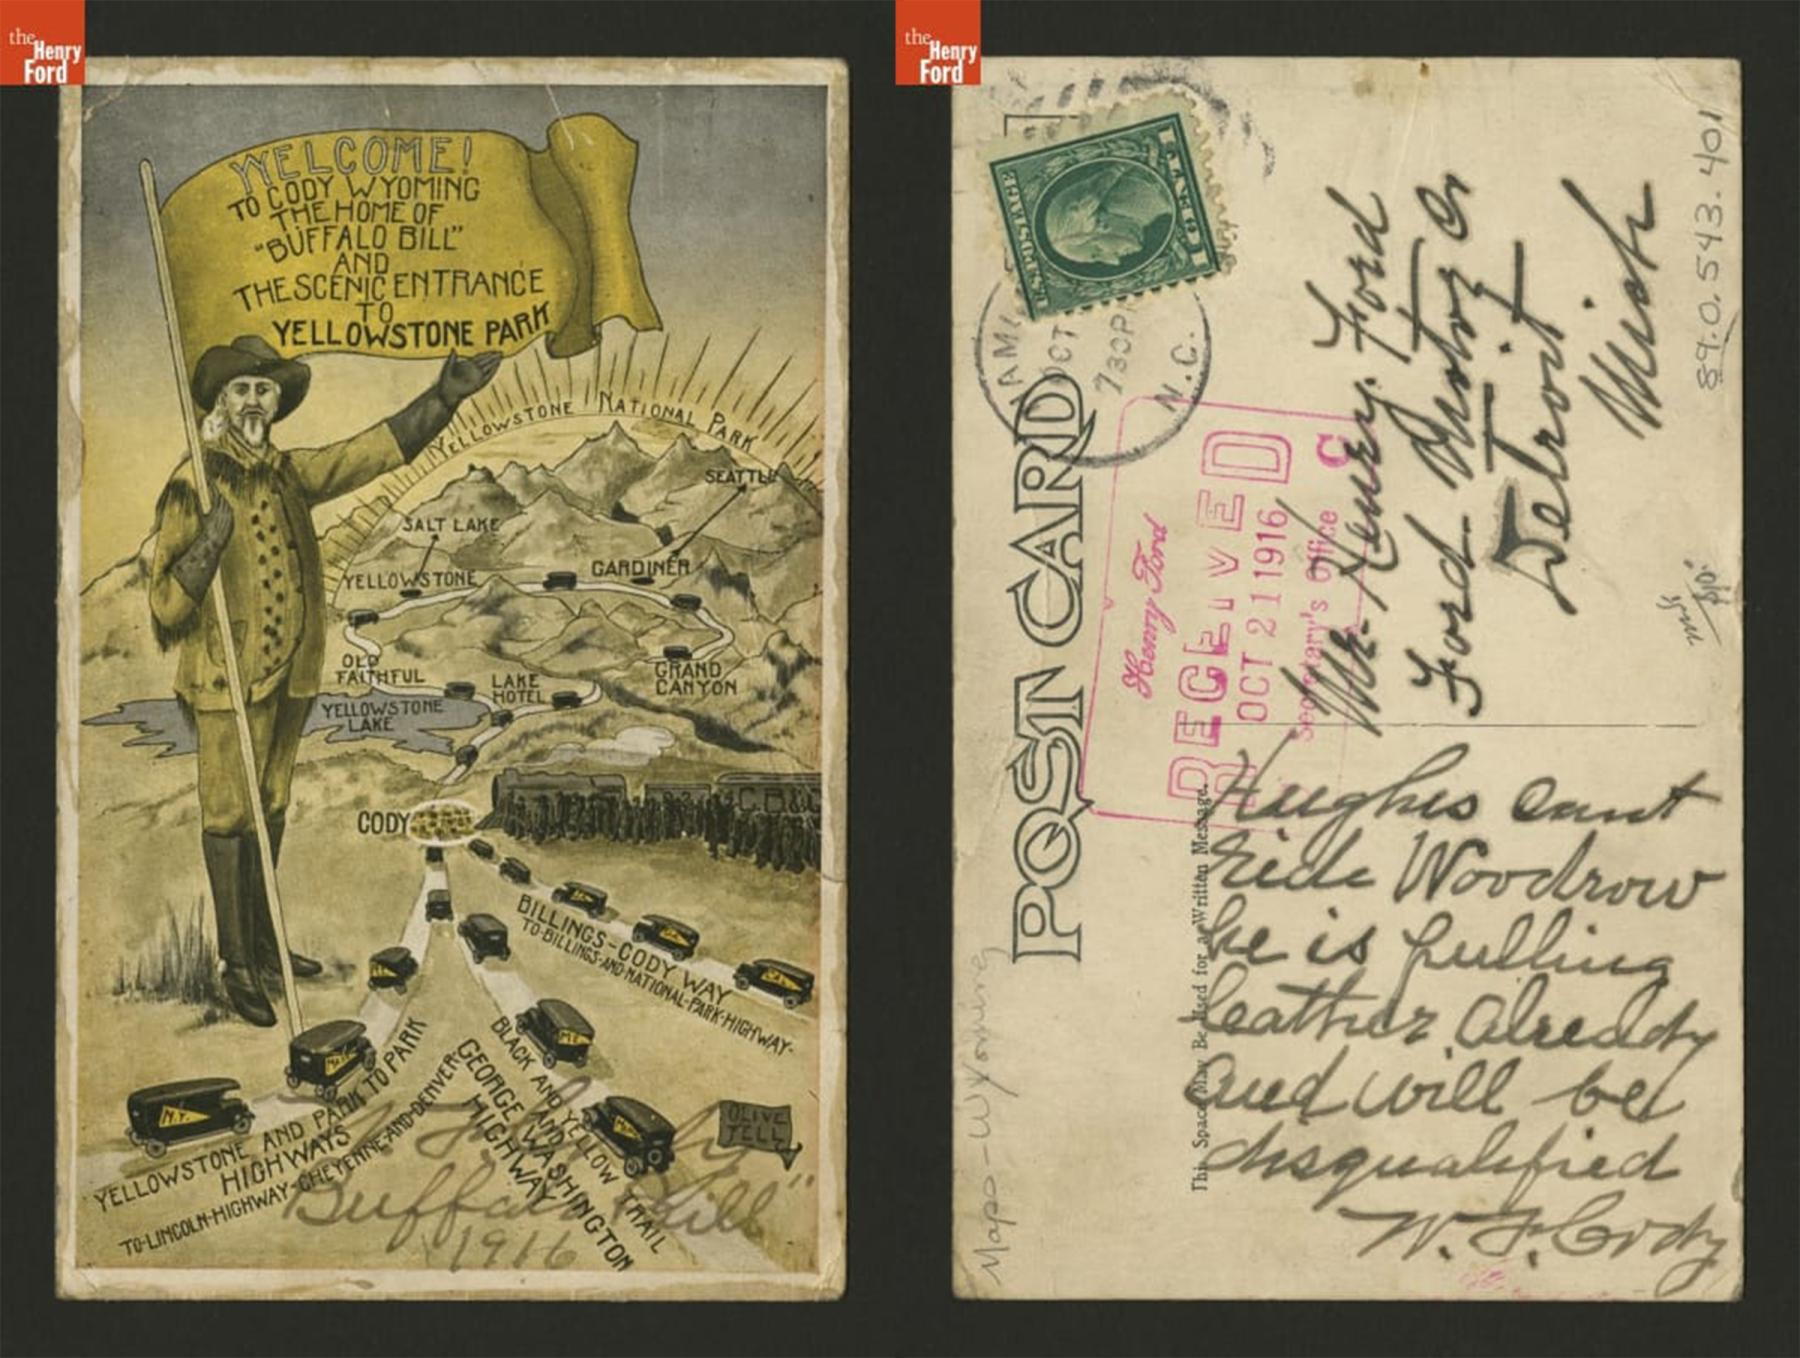 the
Henry
Ford
WELCOME!
TO CODY WYOMING
THE HOME OF
"BUFFALO BILL"
AND
THE SCENIC ENTRANCE
TO
YELLOWSTONE PARK
YELLOWSTONE NATIONAL PARK
SEATTLE
SALT LAKE
YELLOWSTONE
GARDINER
OLD
FAITHFUL
LAKE
HOTEL
GRAND
CANYON
YELLOWSTONE
LAKE
CODY
C.B.&Q
BILLINGS-CODY WAY
TO-BILLINGS-AND-NATIONAL-PARK-HIGHWAY-
BLACK AND YELLOW TRAIL
AND
GEORGE WASHINGTON
HIGHWAY
YELLOWSTONE AND PARK TO PARK
HIGHWAYS
TO-LINCOLN-HIGHWAY-CHEYENNE-AND-DENVER-
N.Y.
OLIVE
FELL
Buffalo Bill"
1916
the
Henry
Ford
U.S. POSTAGE
1 CENT 1
OCT
730P
N.C.
POST CARD
Henry Ford
RECEIVED
OCT 21 1916
Secretary's Office
C
Mr. Henry Ford
Ford Motor Co
Detroit
Mich
89.0.543.401
This Space May Be Used for a Written Message.
Hughes cant
ride Woodrow
he is pulling
leather already
and will be
disqualified
W. F. Cody
Maps-Wyoming